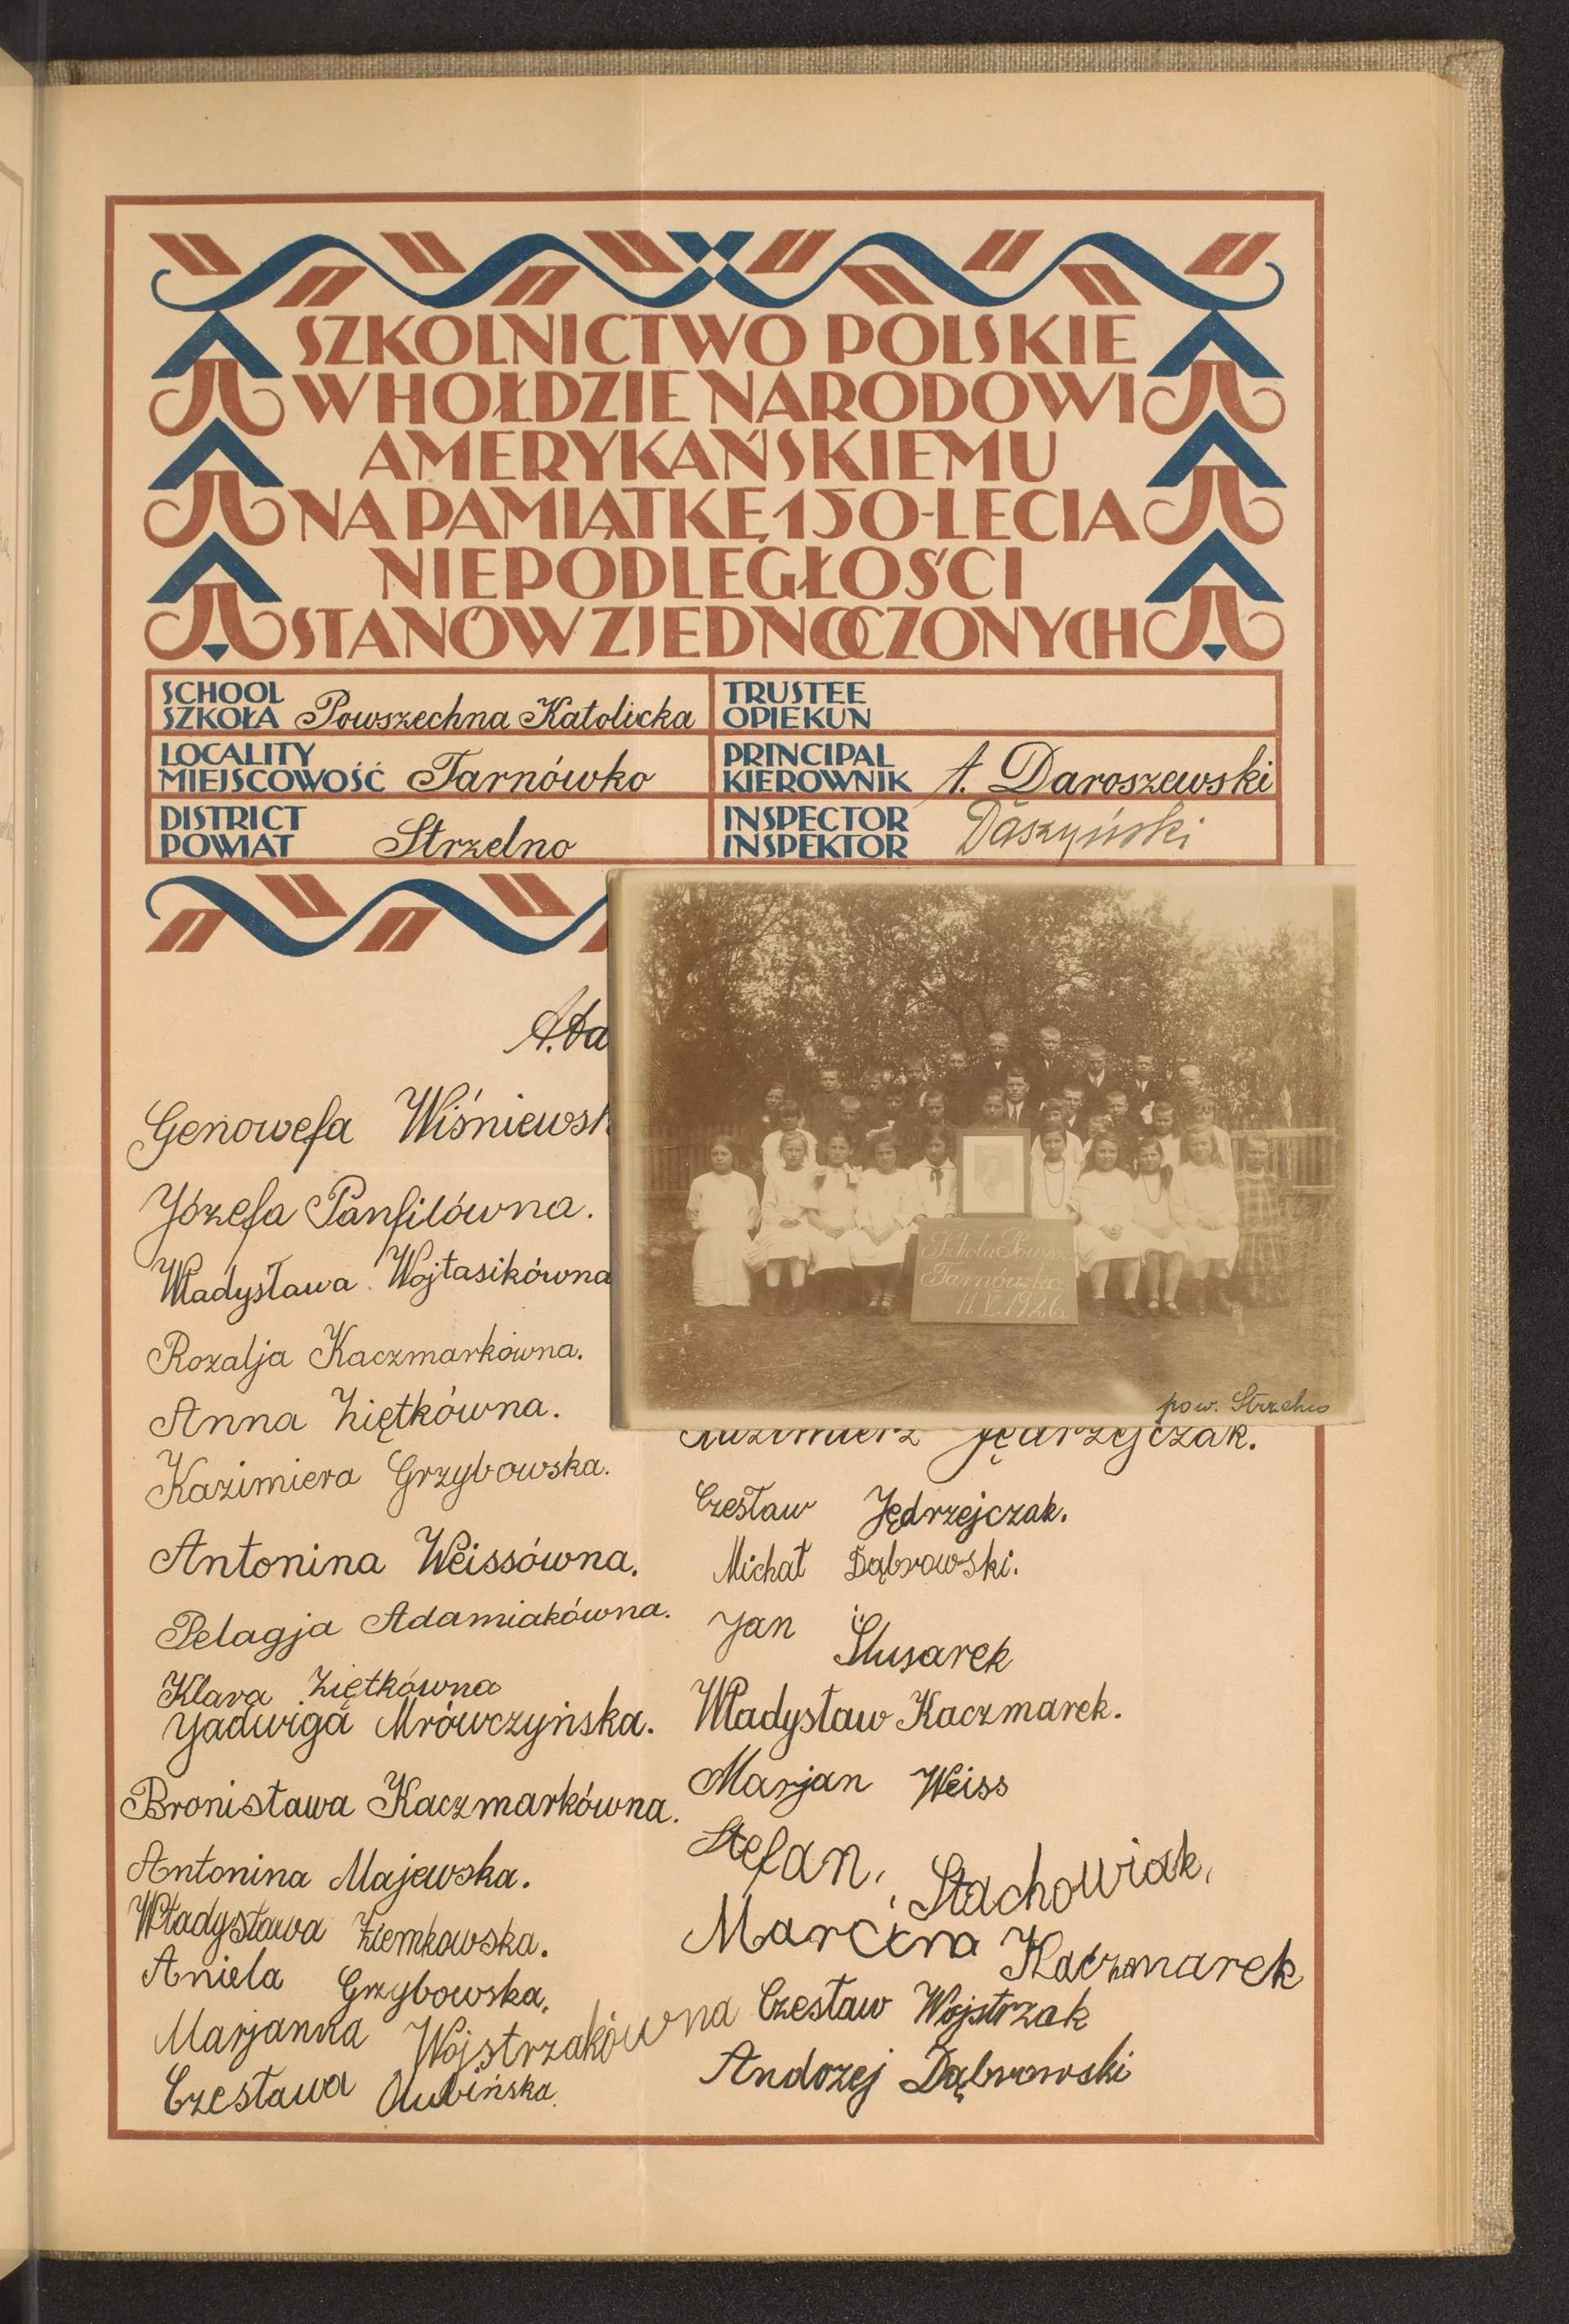 SZKOLNICTWO POLSKIE
W HOŁDZIE NARODOWI
AMERYKAŃSKIEMU
NA PAMIĄTKĘ 150-LECIA
NIEPODLEGŁOŚCI
STANÓW ZJEDNOCZONYCH
SCHOOL
SZKOŁA Powszechna Katolicka
TRUSTEE
OPIEKUN
LOCALITY
MIEJSCOWOŚĆ Tarnówko
PRINCIPAL
KIEROWNIK A. Daroszewski
DISTRICT
POWIAT Strzelno
INSPECTOR
INSPEKTOR Daszyński
A. Da
Genowefa Wiśniewsk
Józefa Panfilówna.
Władysława Wojtasikówna
Rozalja Kaczmarkówna.
Anna Ziętkówna.
Kazimiera Grzybowska.
Antonina Weissówna.
Pelagja Adamiakówna.
Klara Ziętkówna
Jadwiga Mrówczyńska.
Bronisława Kaczmarkówna.
Antonina Majewska.
Władysława Ziemkowska.
Aniela Grzybowska,
Marjanna Wojstrzakówna
Czesława
Szkoła Powsz.
Tarnówko
11.V.1926.
pow. Strzelno
Kazimierz Jędrzejczak.
Czesław Jędrzejczak.
Michał Dąbrowski.
Jan Ślusarek
Władysław Kaczmarek.
Marjan Weiss
Stefan, Stachowiak,
Marcin Kaczmarek
Czesław Wojstrzak
Andrzej Dąbrowski